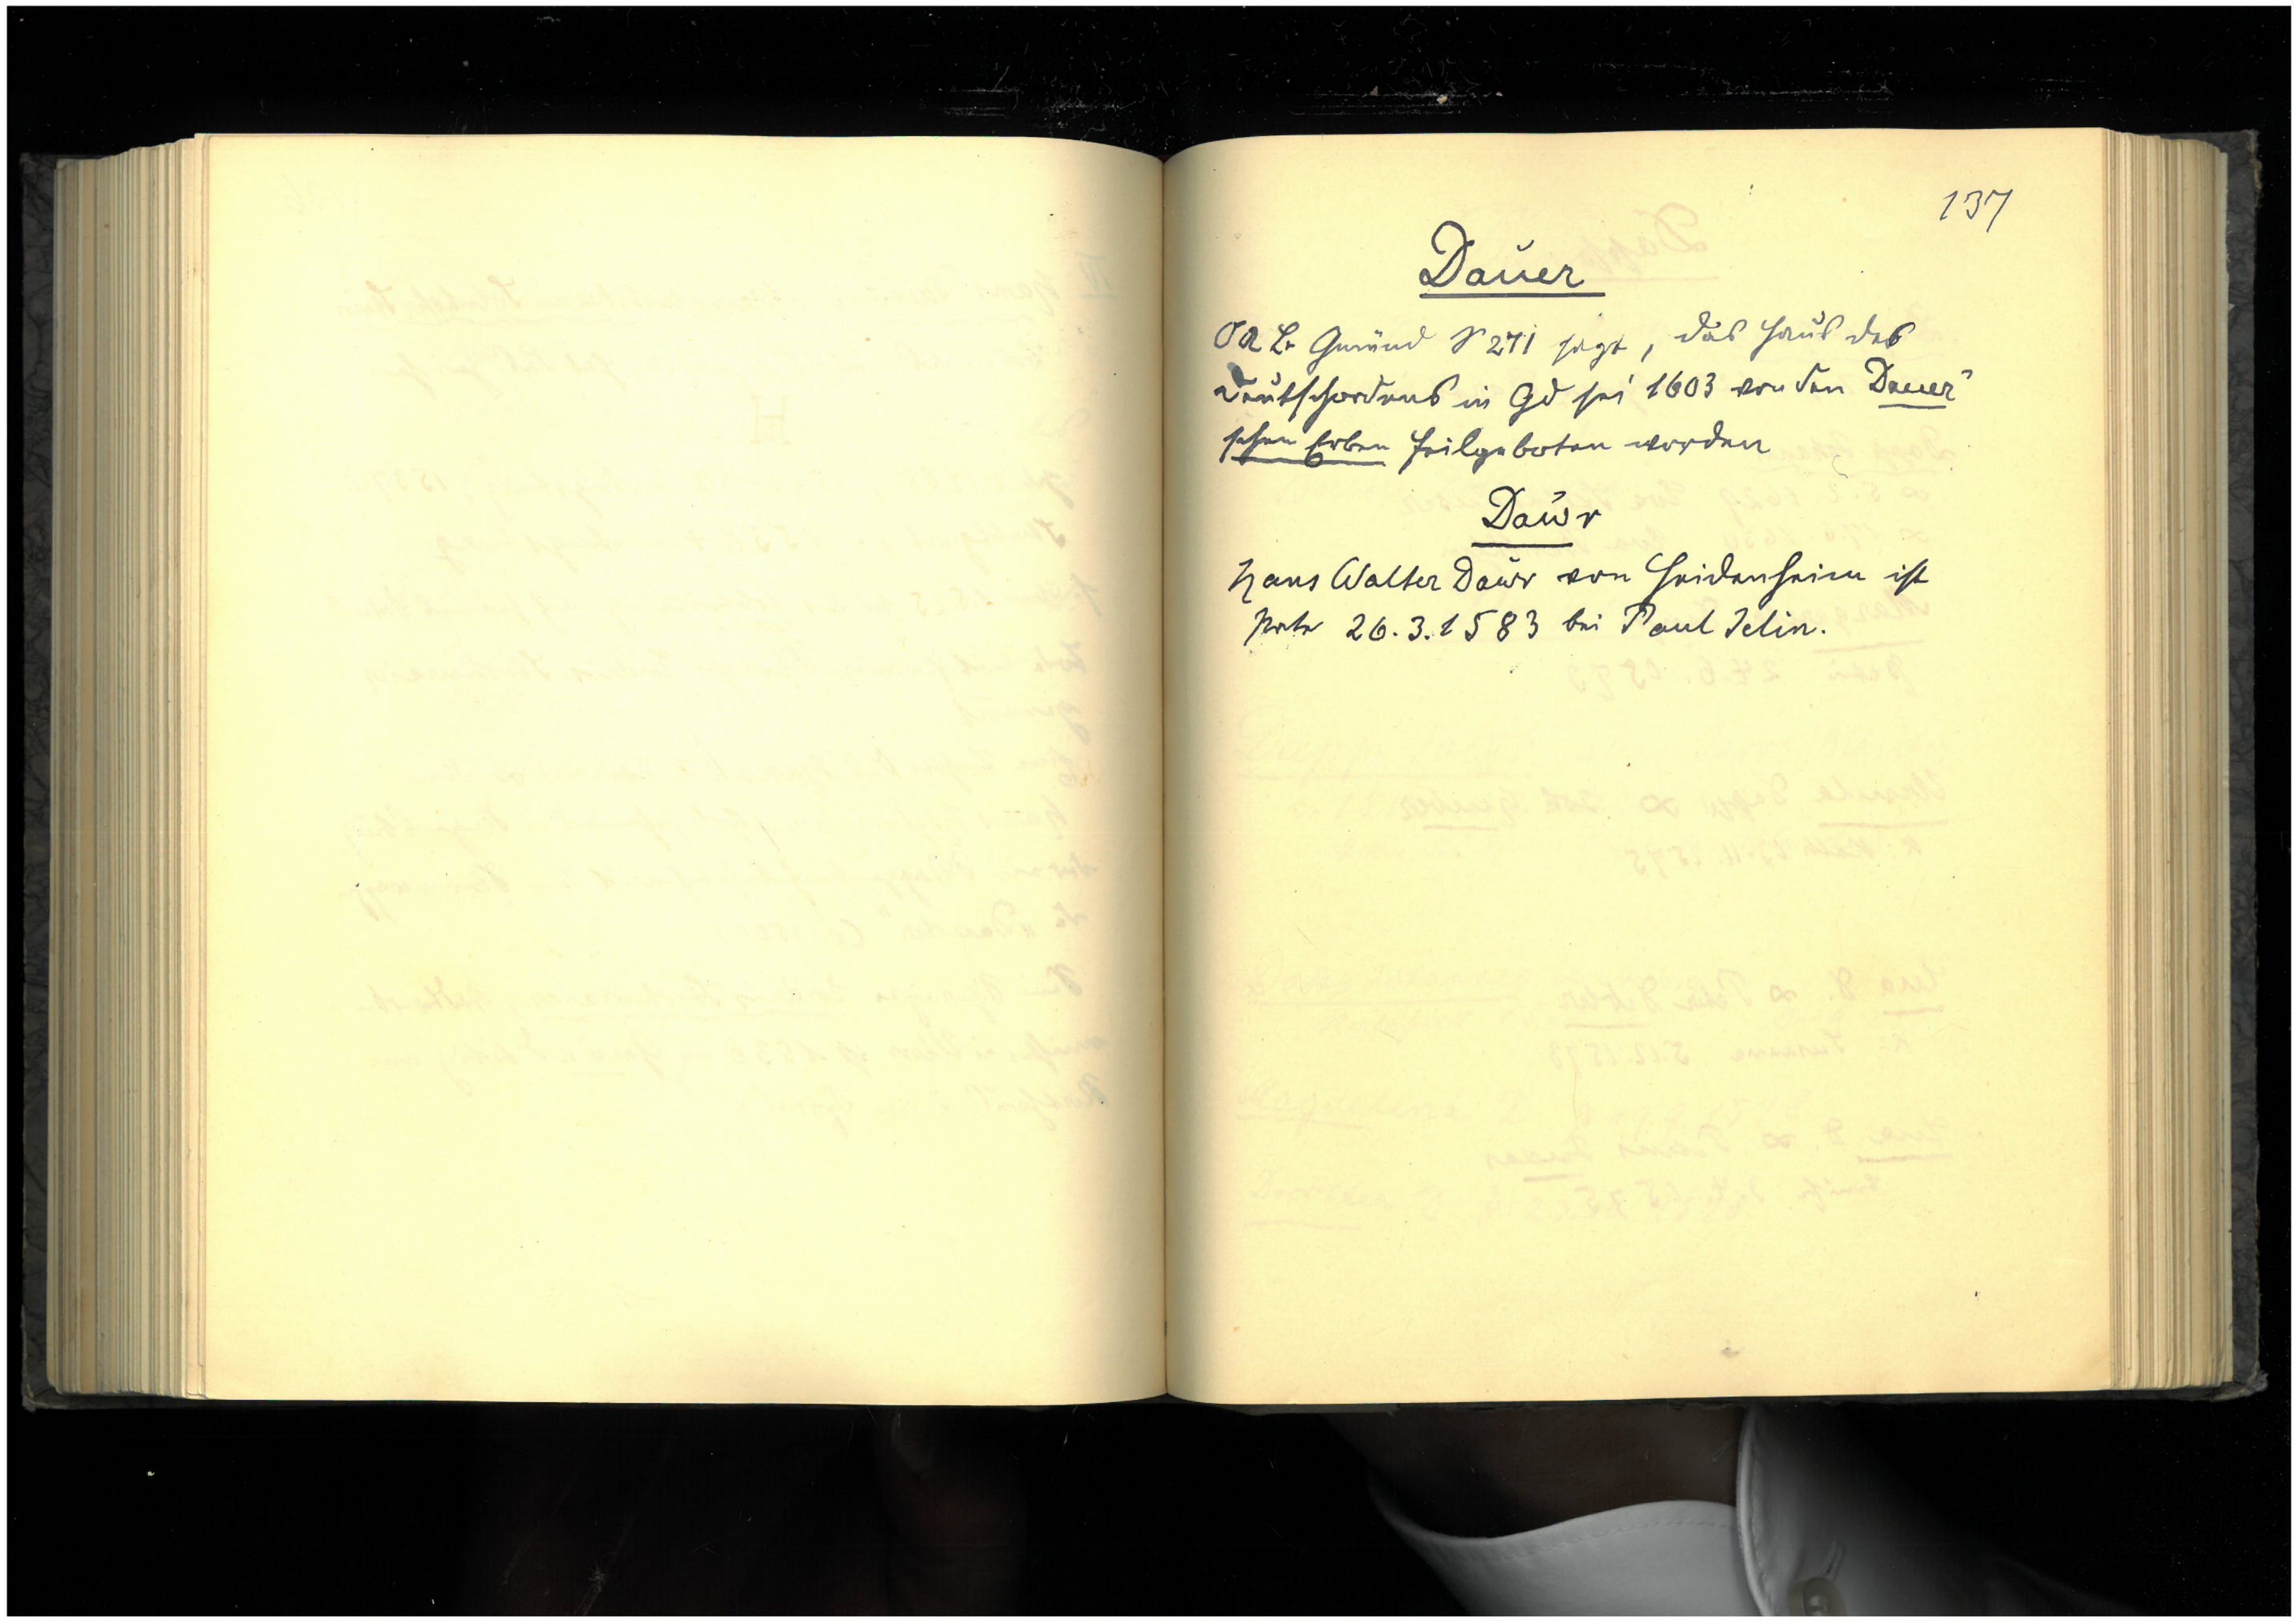 137
Dauer
OA B. Gmünd S 271 sagt, das Haus des
Deutschordens in Gd sei 1603 von den Dauer'
schen Erben feilgeboten worden
Dawr
Hans Walter Dawr von Heidenheim ist
Pate 26.3.1583 bei Paul Jelin.